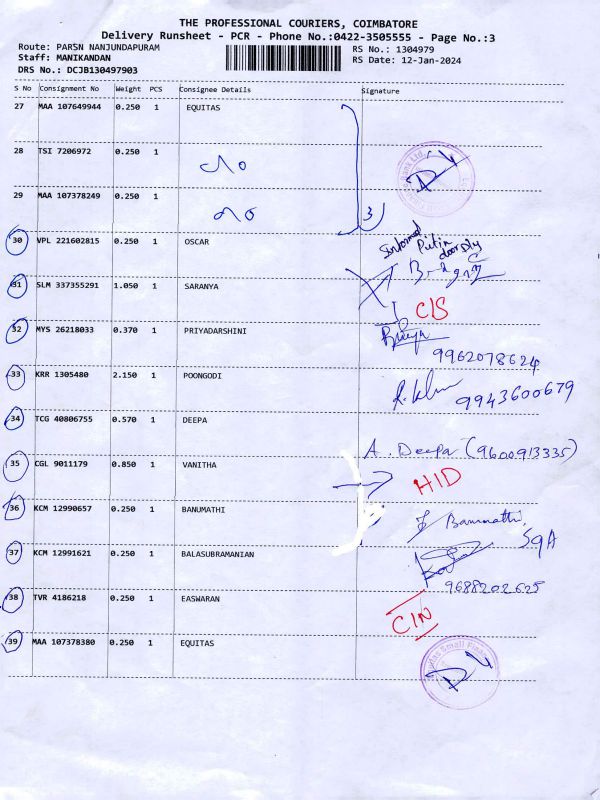 THE PROFESSIONAL COURIERS, COIMBATORE
Delivery Runsheet - PCR - Phone No.:0422-3505555 - Page No.:3
Route: PARSN NANJUNDAPURAM
RS No.: 1304979
Staff: MANIKANDAN
RS Date: 12-Jan-2024
DRS No.: DCJB130497903
S No Consignment No Weight PCS Consignee Details Signature
27 MAA 107649944 0.250 1 EQUITAS
28 TSI 7206972 0.250 1
29 MAA 107378249 0.250 1
3
30 VPL 221602815 0.250 1 OSCAR
Informed
Put in
31 SLM 337355291 1.050 1 SARANYA
C/S
32 MYS 26218033 0.370 1 PRIYADARSHINI
9962078624
33 KRR 1305480 2.150 1 POONGODI
9943600679
34 TCG 40806755 0.570 1 DEEPA
A. Deepa (9600913335)
35 CGL 9011179 0.850 1 VANITHA
HID
36 KCM 12990657 0.250 1 BANUMATHI
59A
37 KCM 12991621 0.250 1 BALASUBRAMANIAN
9688202625
38 TVR 4186218 0.250 1 EASWARAN
CIN
39 MAA 107378380 0.250 1 EQUITAS